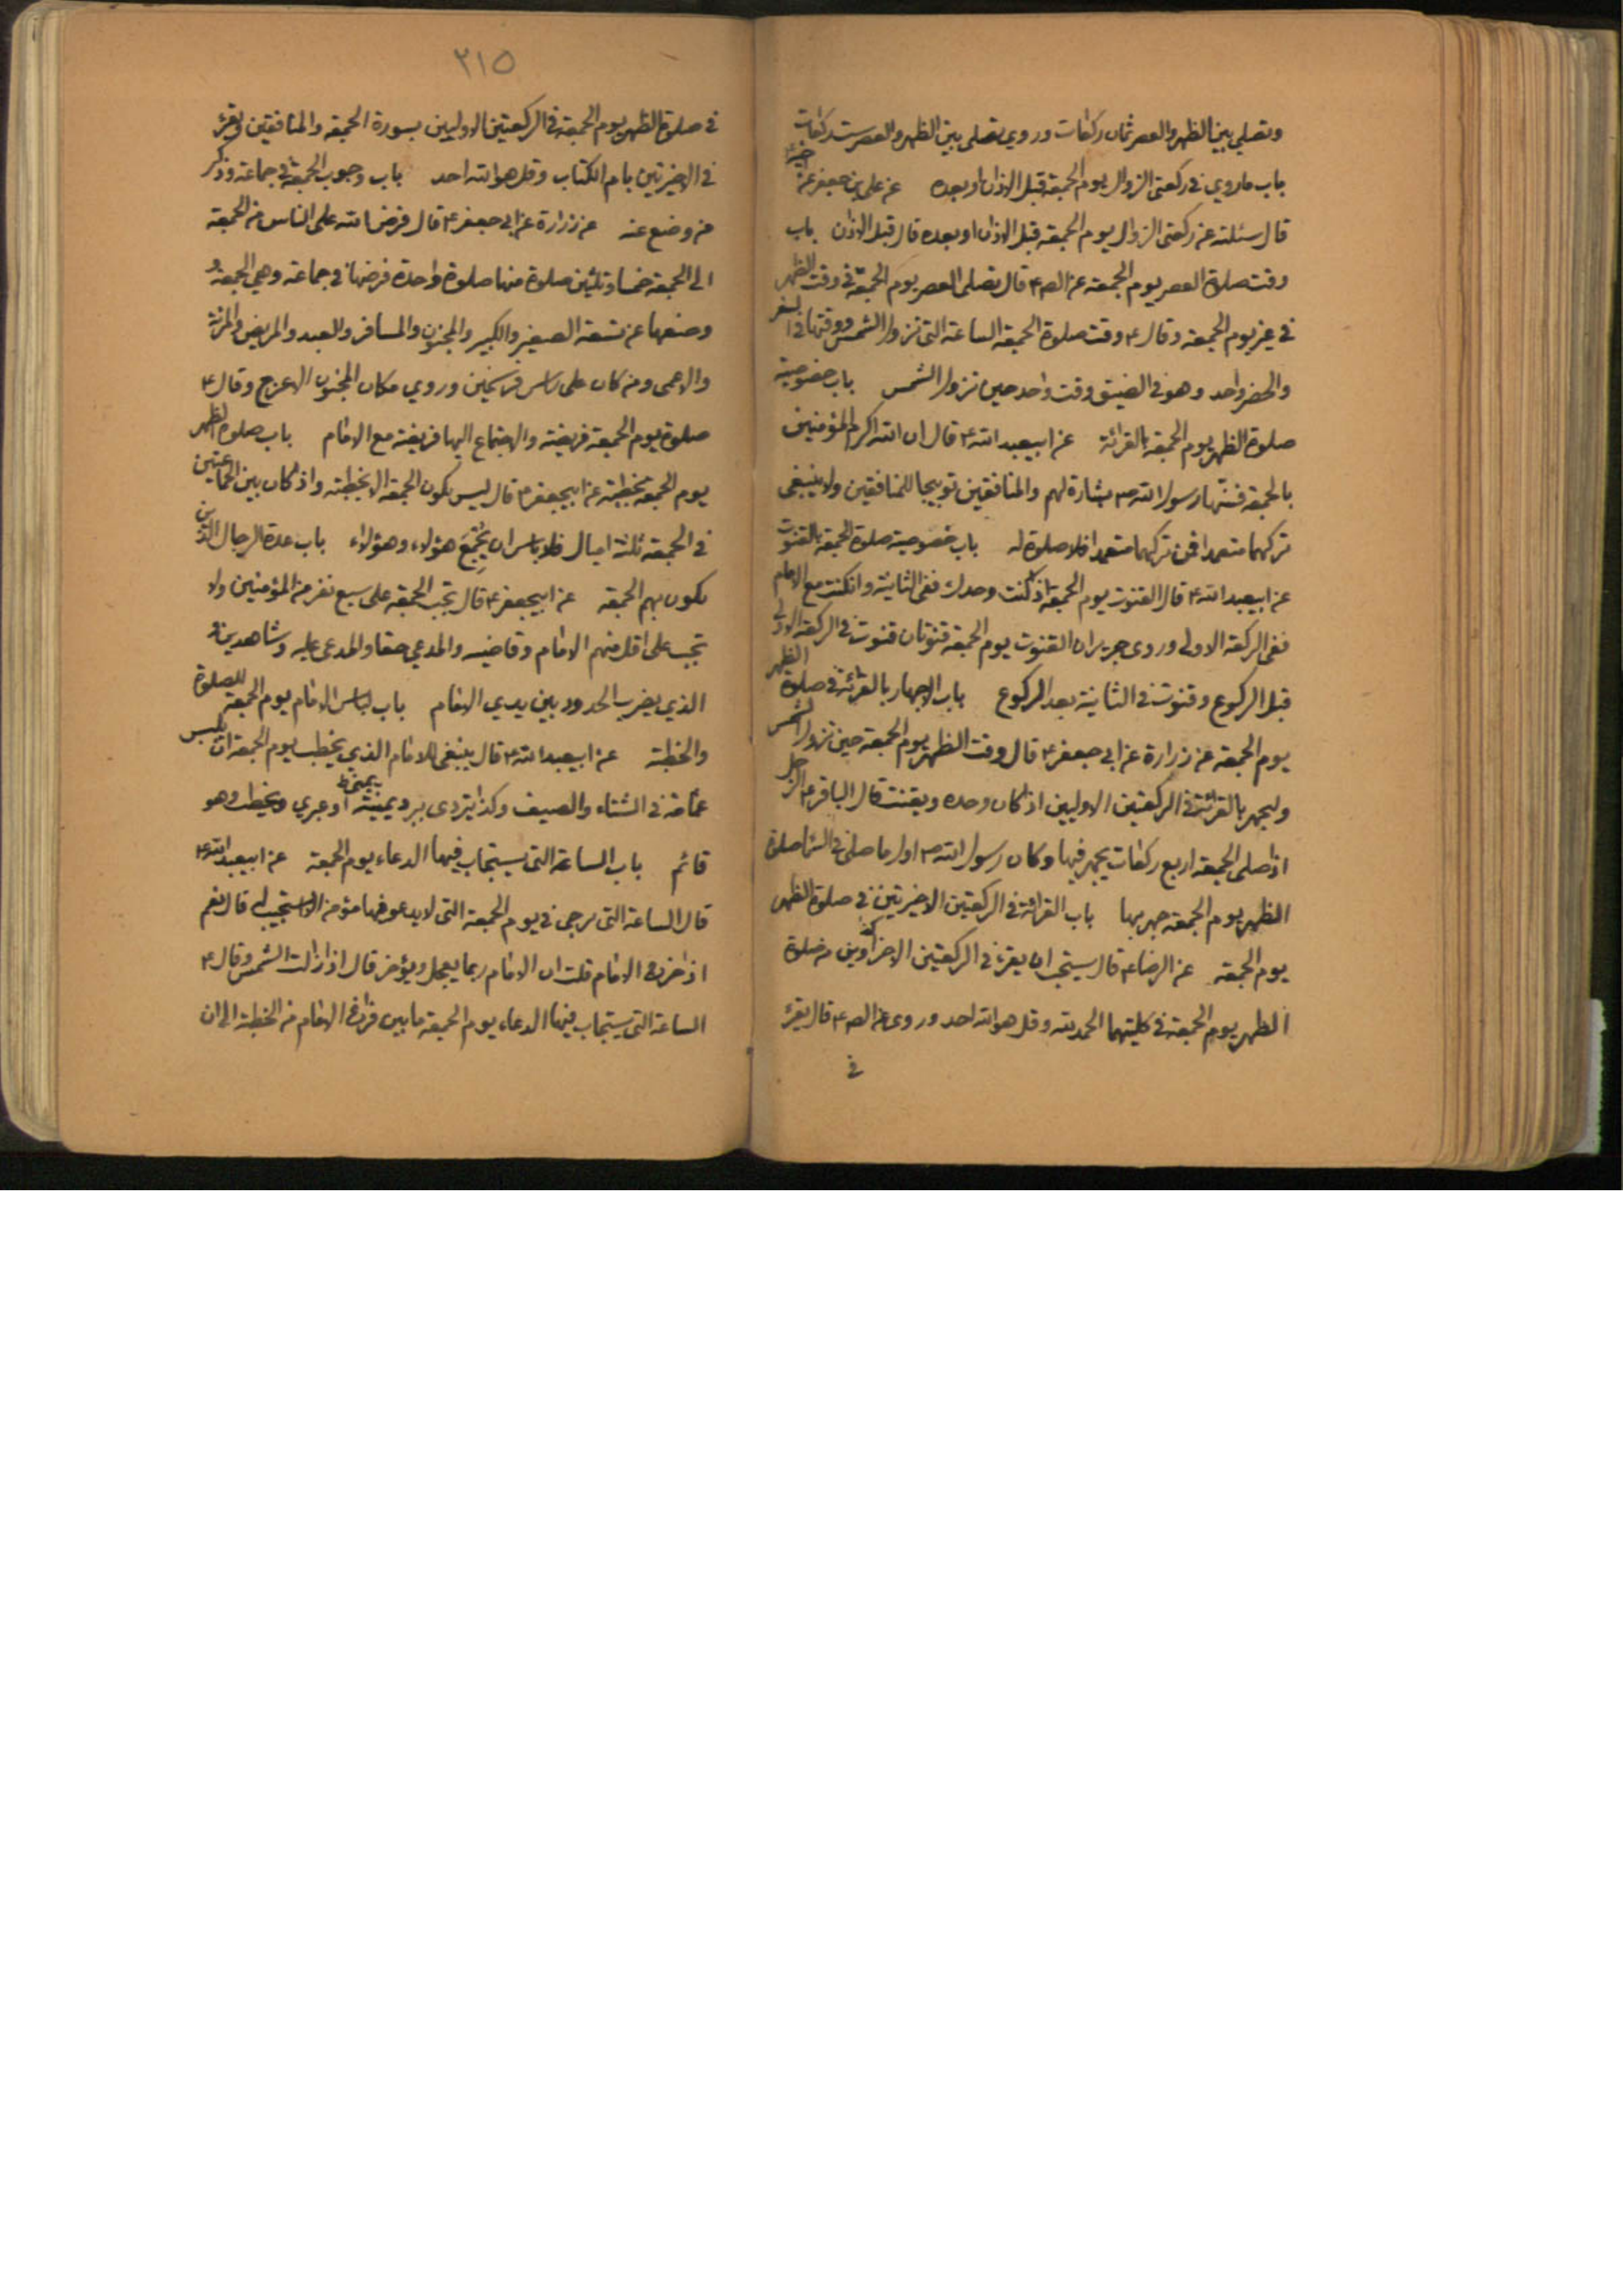 وتصلي بين الظهر والعصر ثمان ركعات وروي تصلي بين الظهر والعصر ست ركعات
باب ما روي في ركعتي الزوال يوم الجمعة قبل الاذان او بعده عن علي بن جعفر عن اخيه ٤
قال سئلته عن ركعتي الزوال يوم الجمعة قبل الاذان او بعده قال قبل الاذان باب
وقت صلاة العصر يوم الجمعة عن الص ٤ قال تصلي العصر يوم الجمعة في وقت الظهر
في غير يوم الجمعة وقال ٤ وقت صلوة الجمعة الساعة التي تزول الشمس ووقتها في السفر
والحضر واحد وهو في الضيق وقت واحد حين تزول الشمس باب خصوصية
صلوة الظهر يوم الجمعة بالقرائة عن ابيعبد الله ٤ قال ان الله اكرم المؤمنين
بالجمعة فسنها رسول الله ص بشارة لهم والمنافقين توبيخا للمنافقين ولا ينبغي
تركهما متعمدا فمن تركهما متعمدا فلا صلوة له باب خصوصية صلوة الجمعة بالقنوت
عن ابيعبد الله ٤ قال القنوت يوم الجمعة اذا كنت وحدك ففي الثانية وان كنت مع الامام
ففي الركعة الاولى وروى حريز ان القنوت يوم الجمعة قنوتان قنوت في الركعة الاولى
قبل الركوع وقنوت في الثانية بعد الركوع باب الاجهار بالقرائة في صلوة الظهر
يوم الجمعة عن زرارة عن ابي جعفر ٤ قال وقت الظهر يوم الجمعة حين تزول الشمس
وليجهر بالقرائة في الركعتين الاوليين اذا كان وحده ويقنت قال الباقر ٤ الرجل
اذا صلى الجمعة اربع ركعات يجهر فيها وكان رسول الله ص اول ما صلى في السما صلوة
الظهر يوم الجمعة جهر بها باب القرائة في الركعتين الاخيرتين في صلوة الظهر
يوم الجمعة عن الرضا ٤ قال يستحب ان يقرء في الركعتين الاخراوين من صلوة
الظهر يوم الجمعة في كلتيهما الحمد لله وقل هو الله احد وروى عن الص ٤ قال يقرء
في
٢١٥
في صلوة الظهر يوم الجمعة في الركعتين الاوليين بسورة الجمعة والمنافقين ويقرء
في الاخيرتين بام الكتاب وقل هو الله احد باب وجوب الجمعة في جماعة وذكر
من وضع عنه عن زرارة عن ابي جعفر ٤ قال فرض الله على الناس من الجمعة
الى الجمعة خمسا وثلثين صلوة منها صلوة واحدة فرضها في جماعة وهي الجمعة و
وضعها عن تسعة الصغير والكبير والمجنون والمسافر والعبد والمريض والمرئة
والاعمى ومن كان على راس فرسخين وروي مكان المجنون الاعرج وقال ٤
صلوة يوم الجمعة فريضة والاجتماع اليها فريضة مع الامام باب صلوة الظهر
يوم الجمعة بخطبة عن ابيجعفر ٤ قال ليس يكون الجمعة الا بخطبة واذا كان بين الجماعتين
في الجمعة ثلثة اميال فلا باس ان يجمع هؤلاء وهؤلاء باب عدة الرجال الذين
يكون بهم الجمعة عن ابيجعفر ٤ قال تجب الجمعة على سبع نفر من المؤمنين ولا
تجب على اقل منهم الامام وقاضيه والمدعي حقا والمدعى عليه وشاهدين و
الذي يضرب الحدود بين يدي الامام باب لباس الامام يوم الجمعة للصلوة
والخطبة عن ابيعبد الله ٤ قال ينبغي للامام الذي يخطب يوم الجمعة ان يلبس
عمامة في الشتاء والصيف وكذا يتردى ببرد يمنية او عبري ويخطب وهو
قائم باب الساعة التي يستجاب فيها الدعاء يوم الجمعة عن ابيعبد الله ٤
قال الساعة التي يرجى في يوم الجمعة التي لا يدعو فيها مؤمن الا استجيب له قال نعم
اذا خرج الامام قلت ان الامام ربما يعجل ويؤخر قال اذا زالت الشمس وقال ٤
الساعة التي يستجاب فيها الدعاء يوم الجمعة ما بين فراغ الامام من الخطبة الى ان